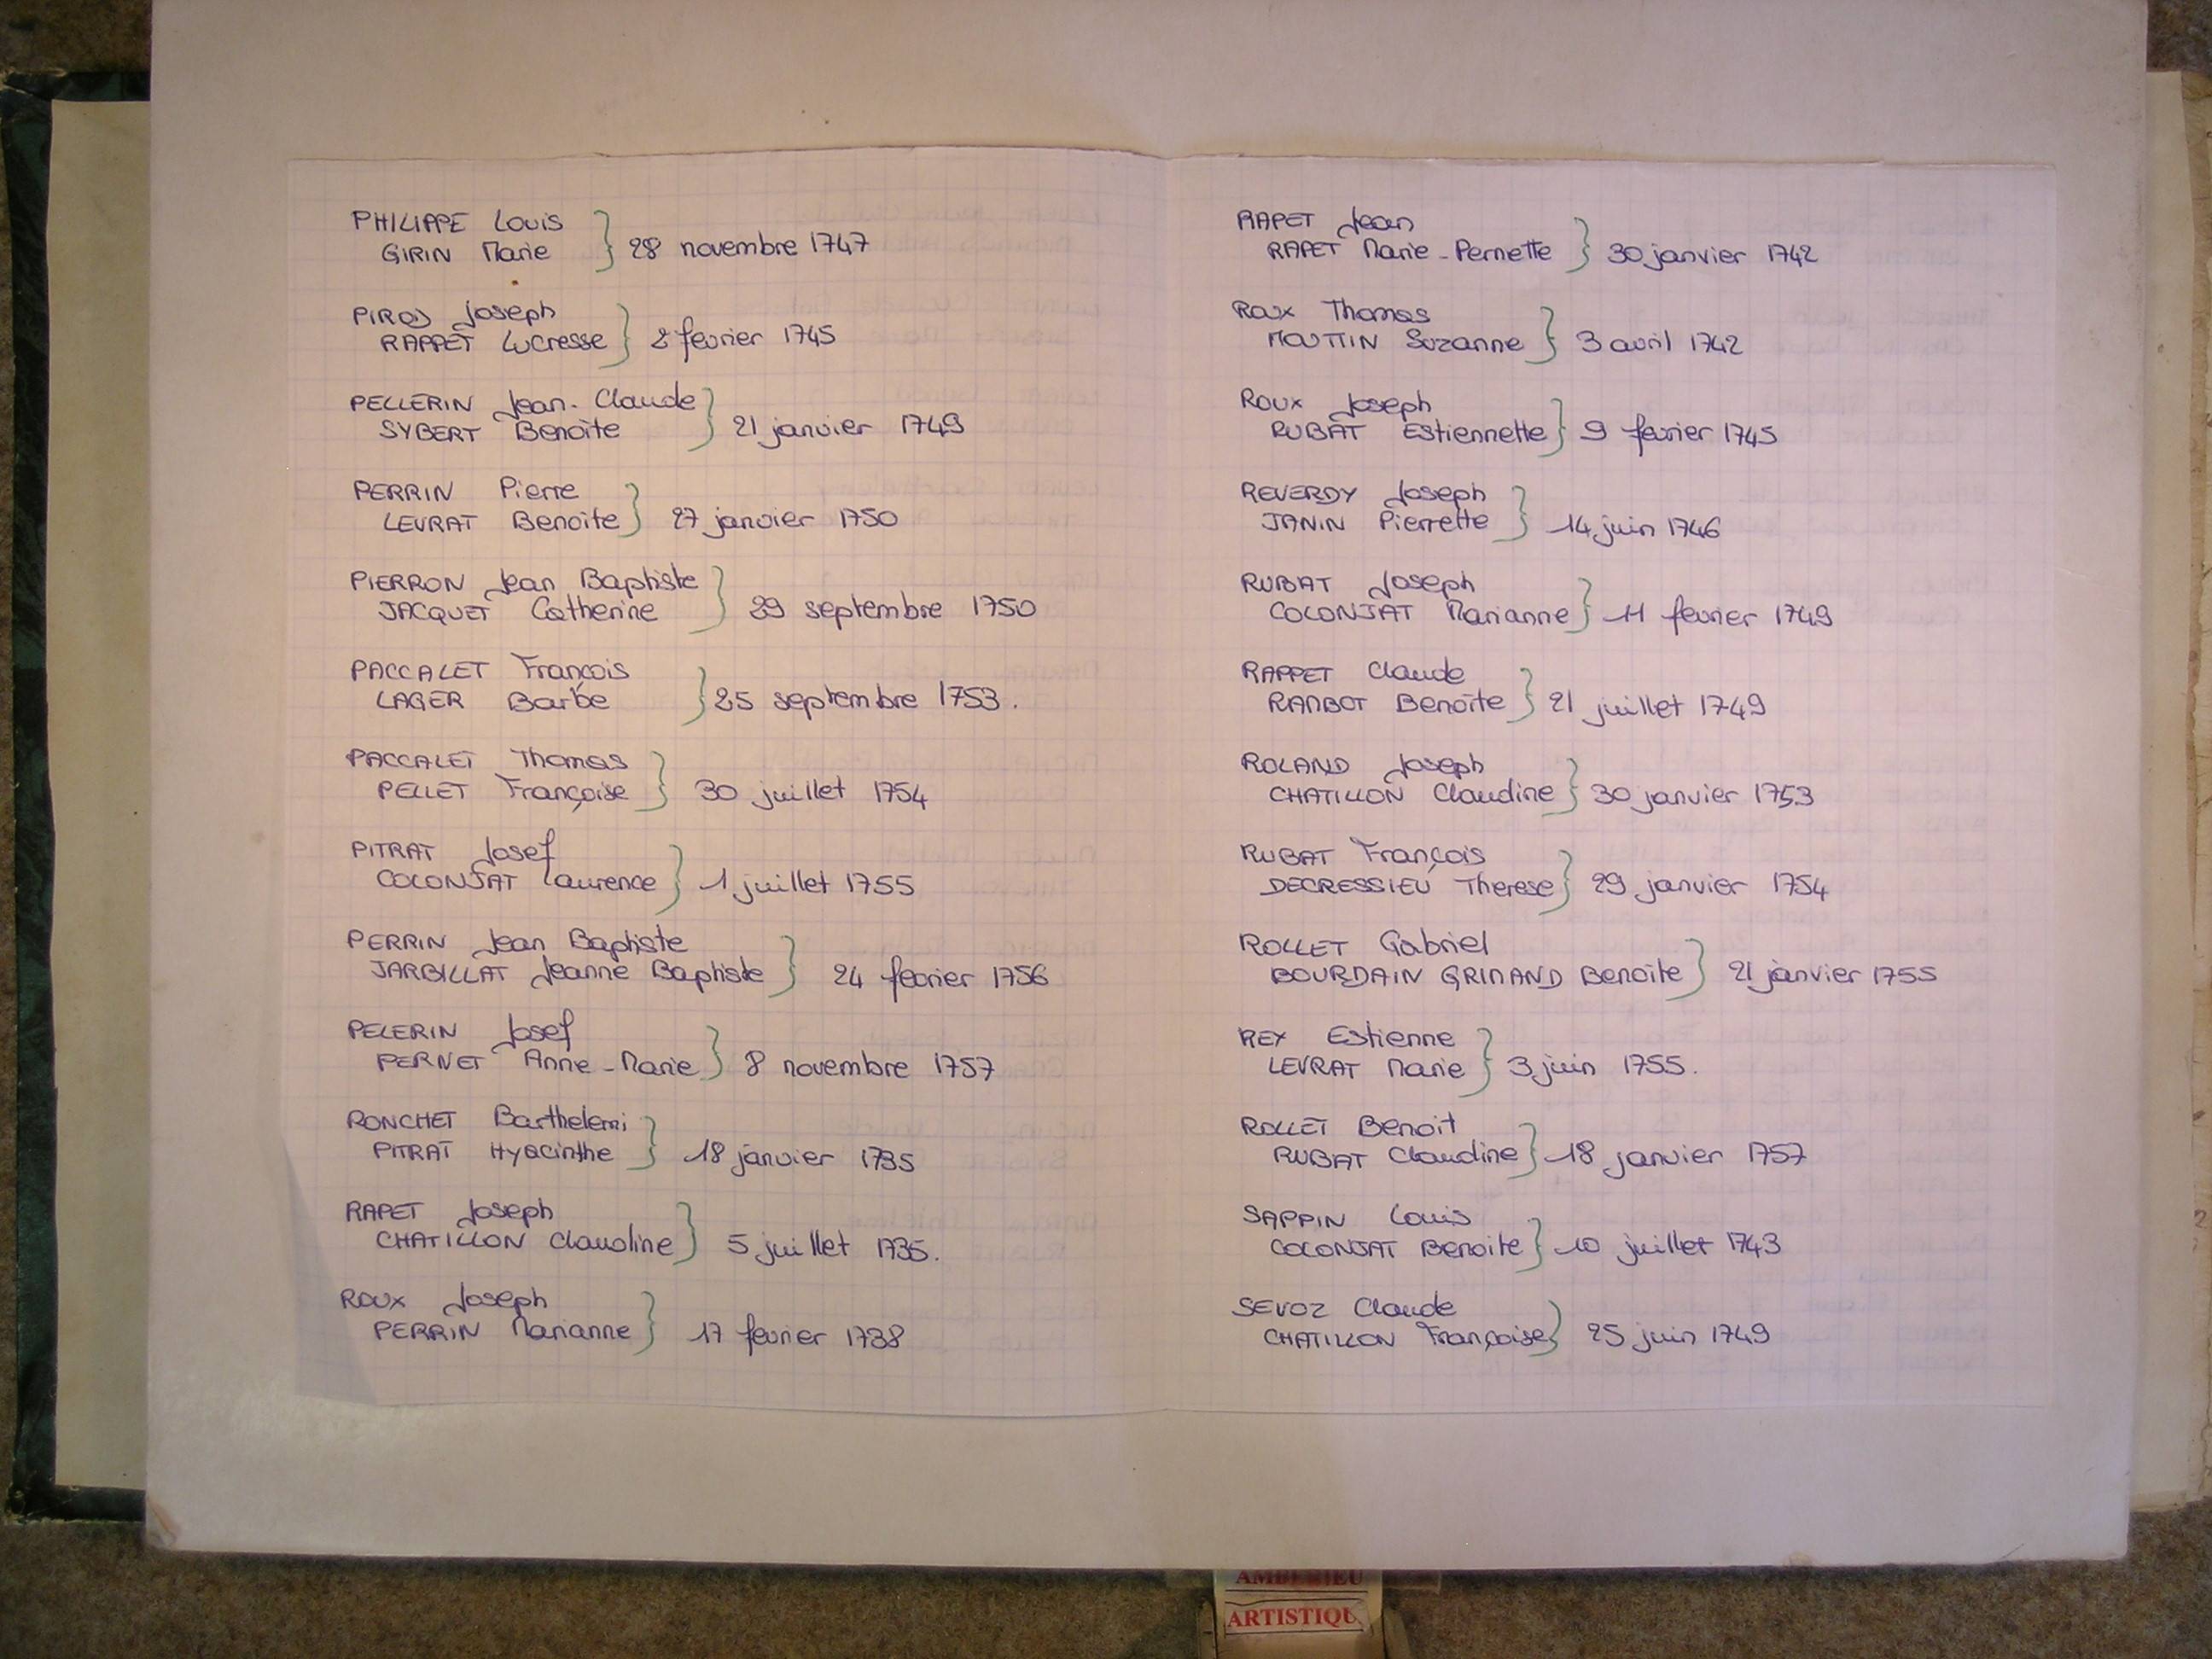 PHILIPPE Louis
GIRIN Marie } 28 novembre 1747
PIROD Joseph
RAPPET Lucresse } 2 février 1745
PELLERIN Jean-Claude
SYBERT Benoîte } 21 janvier 1749
PERRIN Pierre
LEVRAT Benoîte } 27 janvier 1750
PIERRON Jean Baptiste
JACQUET Catherine } 29 septembre 1750
PACCALET François
LAGER Barbe } 25 septembre 1753.
PACCALET Thomas
PELLET Françoise } 30 juillet 1754
PITRAT Josef
COLONJAT Laurence } 1 juillet 1755
PERRIN Jean Baptiste
JARBILLAT Jeanne Baptiste } 24 février 1756
PELERIN Josef
PERNET Anne-Marie } 8 novembre 1757
RONCHET Barthelemi
PITRAT Hyacinthe } 18 janvier 1735
RAPET Joseph
CHATILLON Claudine } 5 juillet 1735.
ROUX Joseph
PERRIN Marianne } 17 février 1738
RAPET Jean
RAPET Marie-Pernette } 30 janvier 1742
ROUX Thomas
MOUTTIN Suzanne } 3 avril 1742
ROUX Joseph
RUBAT Estiennette } 9 février 1745
REVERDY Joseph
JANIN Pierrette } 14 juin 1746
RUBAT Joseph
COLONJAT Marianne } 11 février 1749
RAPPET Claude
RAMBOT Benoîte } 21 juillet 1749
ROLAND Joseph
CHATILLON Claudine } 30 janvier 1753
RUBAT François
DECRESSIEU Therese } 29 janvier 1754
ROLLET Gabriel
BOURDAIN GRIMAND Benoîte } 21 janvier 1755
REY Estienne
LEVRAT Marie } 3 juin 1755.
ROLLET Benoit
RUBAT Claudine } 18 janvier 1757
SAPPIN Louis
COLONJAT Benoite } 10 juillet 1743
SEVOZ Claude
CHATILLON Françoise } 25 juin 1749
AMBERIEU
ARTISTIQU